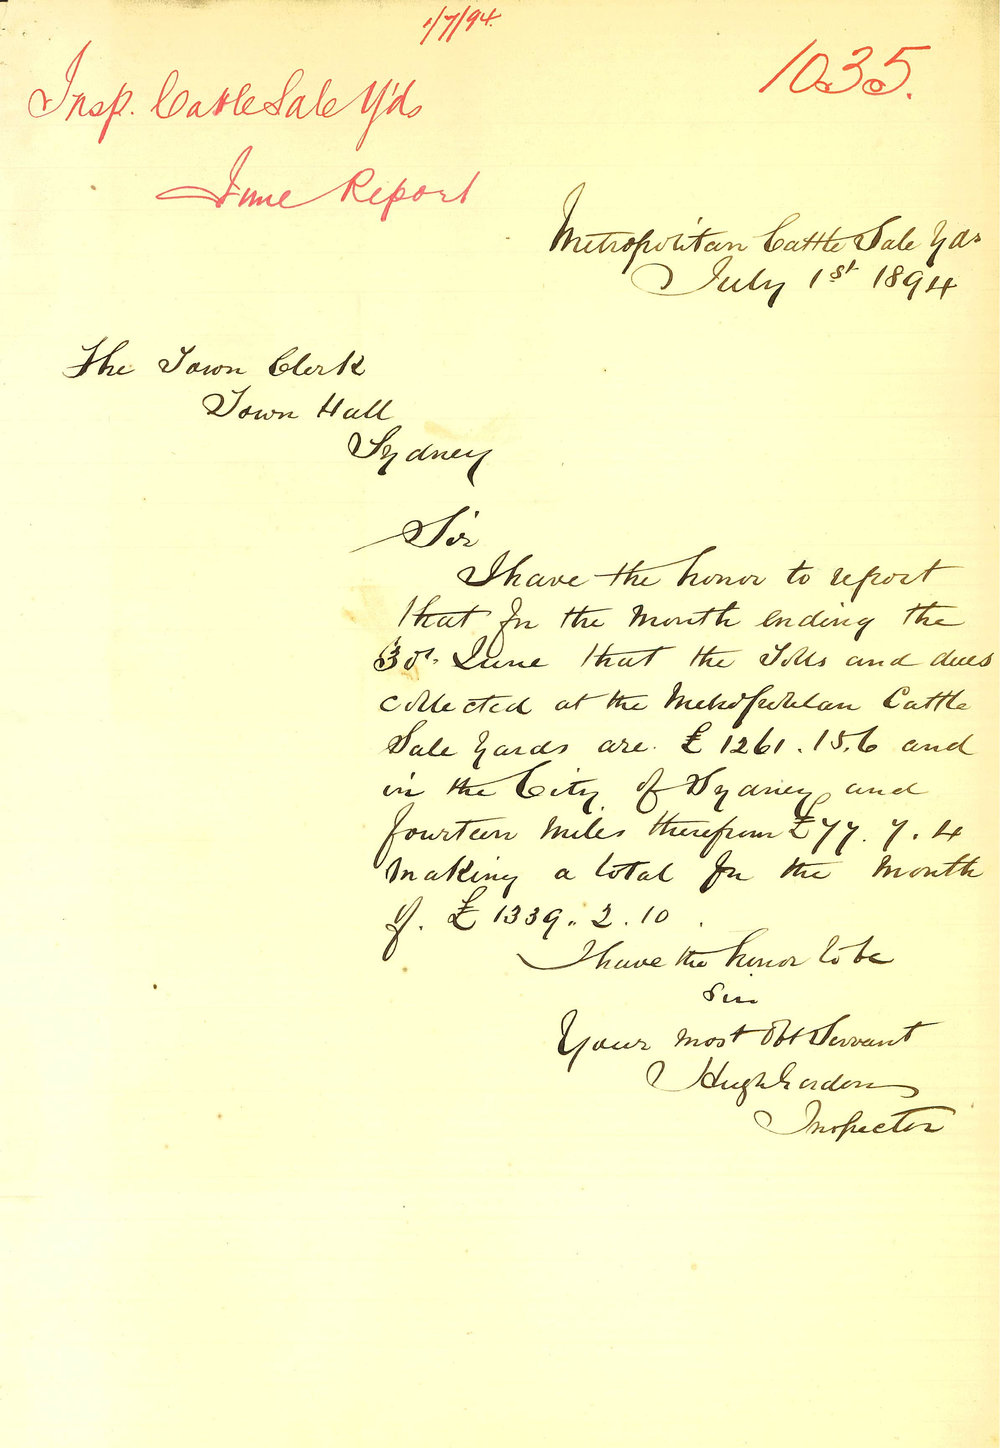 1/7/94.
1035.
Insp. Cattle Sale Y'ds
June Report
Metropolitan Cattle Sale Yds
July 1st 1894
The Town Clerk
Town Hall
Sydney
Sir
I have the honor to report
that for the Month ending the
30th. June that the Tolls and dues
collected at the Metropolitan Cattle
Sale Yards are £1261.15.6 and
in the City of Sydney and
fourteen Miles therefrom £77.7.4
Making a total for the Month
of. £1339.2.10.
I have the honor to be
Sir
Your most Obt Servant
Hugh Gordon
Inspector